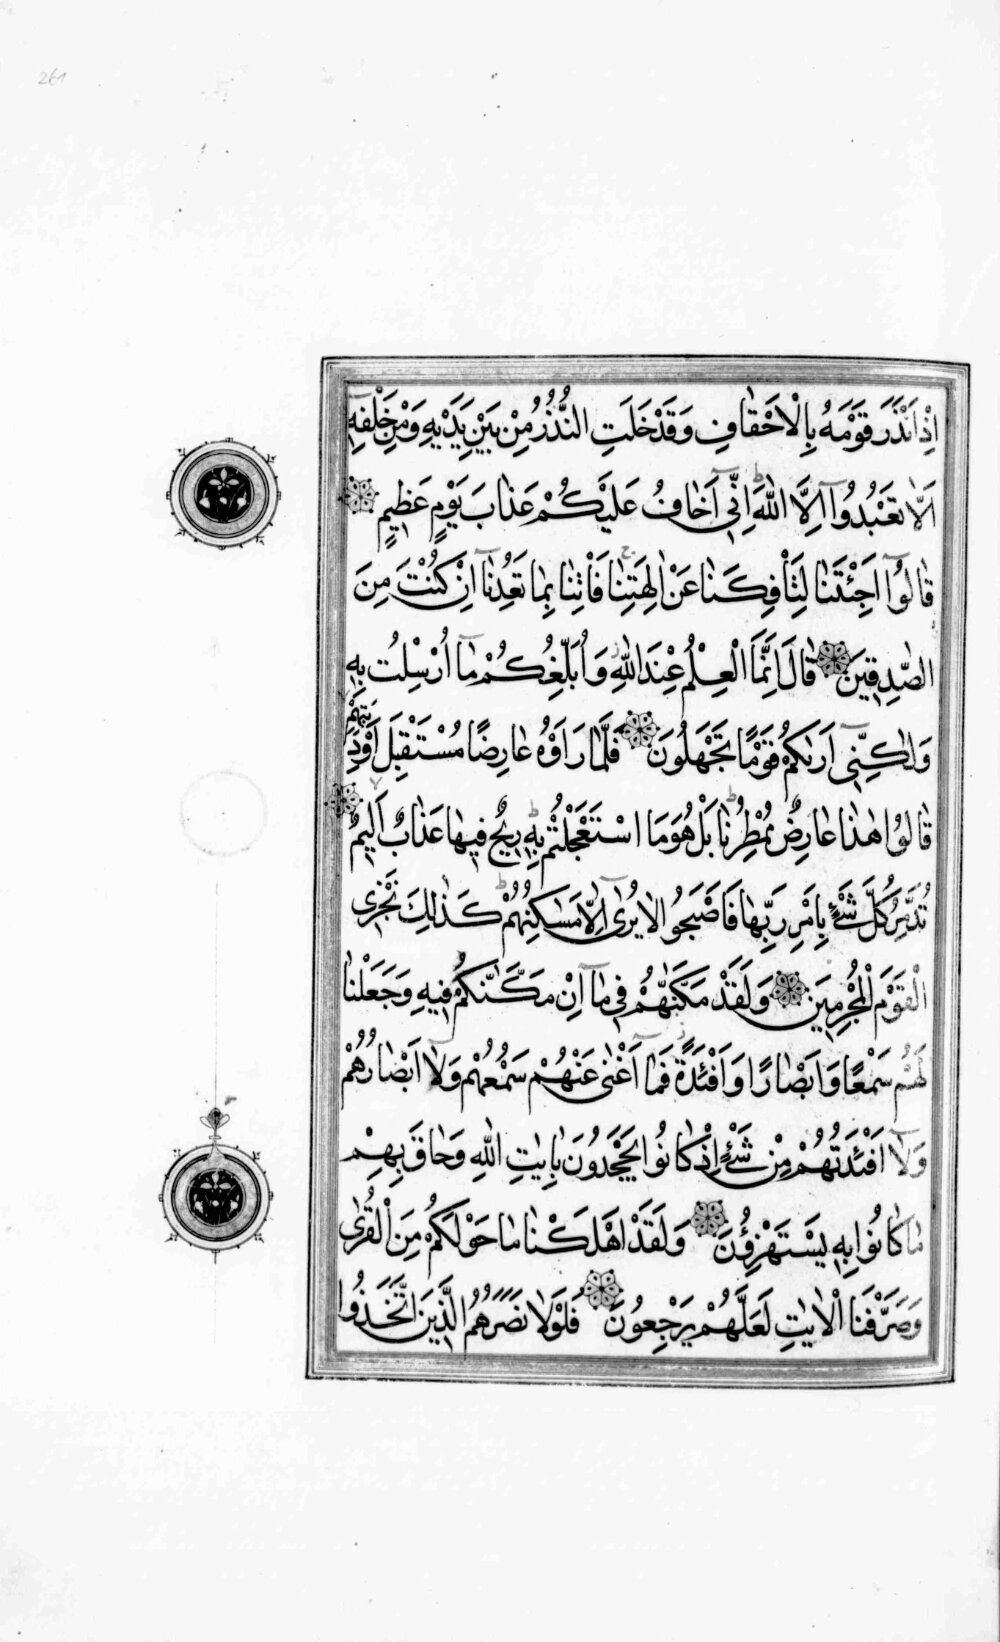 261
اِذْ اَنْذَرَ قَوْمَهُ بِالْاَحْقَافِ وَقَدْ خَلَتِ النُّذُرُ مِنْ بَيْنِ يَدَيْهِ وَمِنْ خَلْفِهٖٓ
اَلَّا تَعْبُدُوٓا اِلَّا اللّٰهَ ط اِنّٖٓي اَخَافُ عَلَيْكُمْ عَذَابَ يَوْمٍ عَظٖيمٍ
قَالُوٓا اَجِئْتَنَا لِتَاْفِكَنَا عَنْ اٰلِهَتِنَا ج فَاْتِنَا بِمَا تَعِدُنَٓا اِنْ كُنْتَ مِنَ
الصّٰدِقٖينَ قَالَ اِنَّمَا الْعِلْمُ عِنْدَ اللّٰهِ ز وَاُبَلِّغُكُمْ مَٓا اُرْسِلْتُ بِهٖ
وَلٰكِنّٖٓي اَرٰيكُمْ قَوْمًا تَجْهَلُونَ فَلَمَّا رَاَوْهُ عَارِضًا مُسْتَقْبِلَ اَوْدِيَتِهِمْ لا
قَالُوا هٰذَا عَارِضٌ مُمْطِرُنَا ط بَلْ هُوَ مَا اسْتَعْجَلْتُمْ بِهٖ ط رٖيحٌ فٖيهَا عَذَابٌ اَلٖيمٌ لا
تُدَمِّرُ كُلَّ شَيْءٍ بِاَمْرِ رَبِّهَا فَاَصْبَحُوا لَا يُرٰٓى اِلَّا مَسَاكِنُهُمْ ط كَذٰلِكَ نَجْزِي
الْقَوْمَ الْمُجْرِمٖينَ وَلَقَدْ مَكَّنَّاهُمْ فٖي مَٓا اِنْ مَكَّنَّاكُمْ فٖيهِ وَجَعَلْنَا
لَهُمْ سَمْعًا وَاَبْصَارًا وَاَفْئِدَةً ز فَمَٓا اَغْنٰى عَنْهُمْ سَمْعُهُمْ وَلَٓا اَبْصَارُهُمْ
وَلَٓا اَفْئِدَتُهُمْ مِنْ شَيْءٍ اِذْ كَانُوا يَجْحَدُونَ بِاٰيَاتِ اللّٰهِ وَحَاقَ بِهِمْ
مَا كَانُوا بِهٖ يَسْتَهْزِؤُنَ وَلَقَدْ اَهْلَكْنَا مَا حَوْلَكُمْ مِنَ الْقُرٰى
وَصَرَّفْنَا الْاٰيَاتِ لَعَلَّهُمْ يَرْجِعُونَ فَلَوْلَا نَصَرَهُمُ الَّذٖينَ اتَّخَذُوا